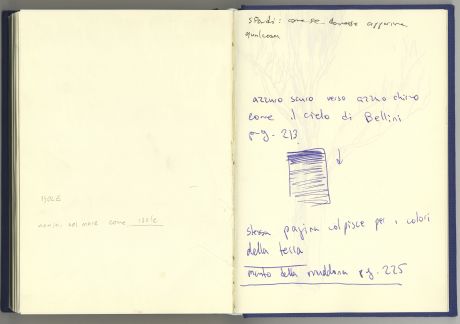 ISOLE
nel mare come isole
sfondi: come se dovesse apparire
qualcosa
azzurro scuro verso azzurro chiaro
come il cielo di Bellini
pg. 213
stessa pagina colpisce per i colori
della terra
manto della madonna pg. 225